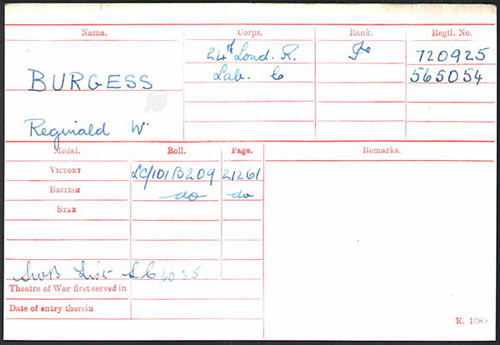 Name. Corps. Rank. Regtl. No.
BURGESS 24th Lond. R. Pte 720925
Lab. C 565054
Reginald W.
Medal. Roll. Page. Remarks.
VICTORY LC/101B209 21261
BRITISH do do
STAR
SWB List LC/
Theatre of War first served in
Date of entry therein
K. 1380